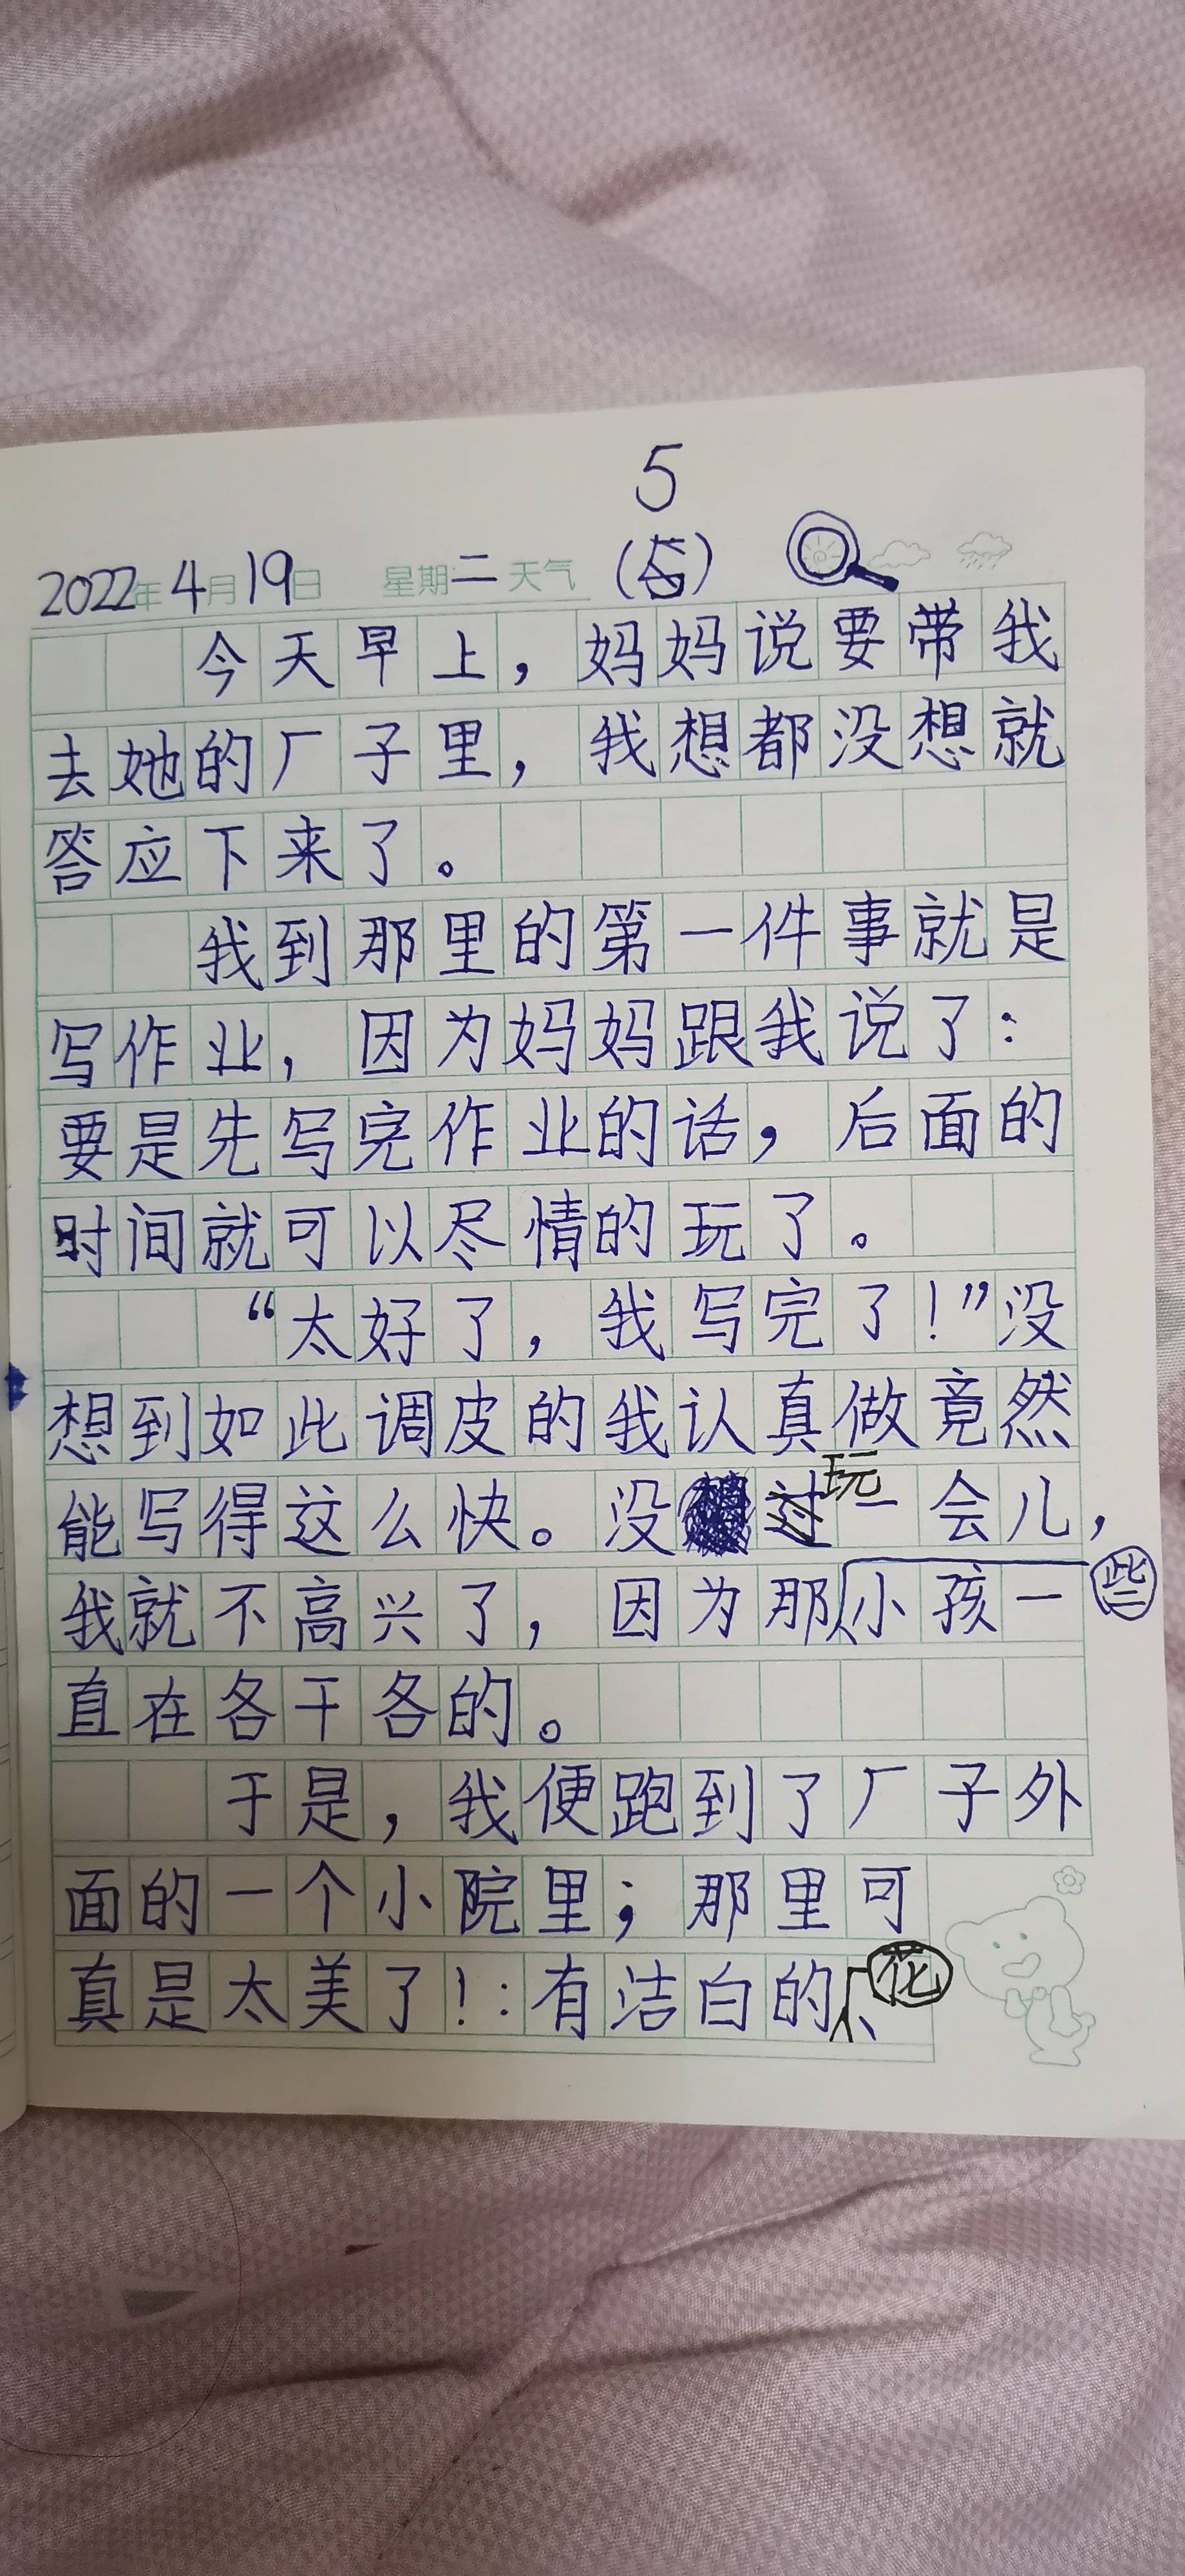 5
2022年4月19日 星期二 天气 (5)
今天早上，妈妈说要带我
去她的厂子里，我想都没想就
答应下来了。
我到那里的第一件事就是
写作业，因为妈妈跟我说了：
要是先写完作业的话，后面的
时间就可以尽情的玩了。
“太好了，我写完了！”没
想到如此调皮的我认真做竟然
能写得这么快。没玩一会儿，
我就不高兴了，因为那些小孩一
直在各干各的。
于是，我便跑到了厂子外
面的一个小院里；那里可
真是太美了！：有洁白的花、